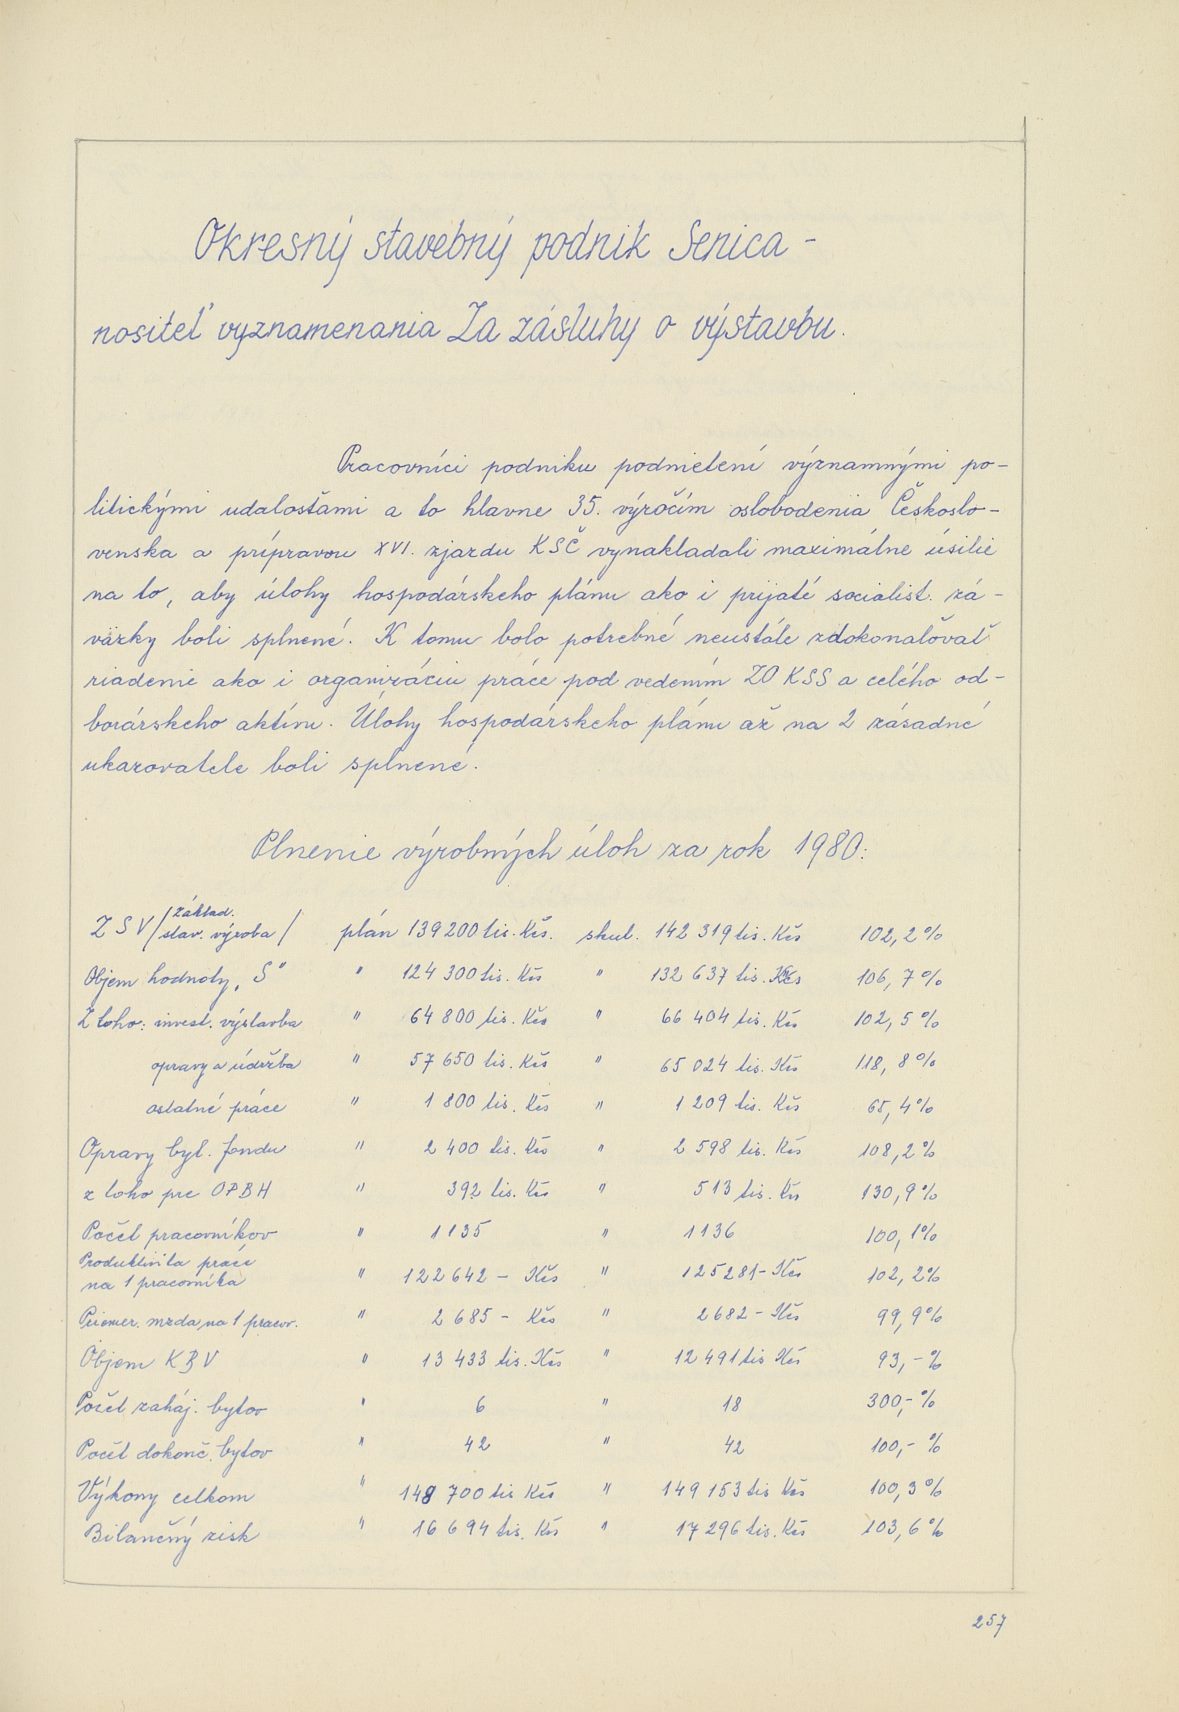 Okresný stavebný podnik Senica -
nositeľ vyznamenania Za zásluhy o výstavbu.
Pracovníci podniku podnietení významnými po-
litickými udalosťami a to hlavne 35. výročím oslobodenia Českoslo-
venska a prípravou XVI. zjazdu KSČ vynakladali maximálne úsilie
na to, aby úlohy hospodárskeho plánu ako i prijaté socialist. zá-
väzky boli splnené. K tomu bolo potrebné neustále zdokonaľovať
riadenie ako i organizáciu práce pod vedením ZO KSS a celého od-
borárskeho aktívu. Úlohy hospodárskeho plánu až na 2 zásadné
ukazovatele boli splnené.
Plnenie výrobných úloh za rok 1980:
ZSV /základ. stav. výroba/ plán 139 200 tis. Kčs. skut. 142 319 tis. Kčs 102,2 %
Objem hodnoty „S" " 124 300 tis. Kčs " 132 637 tis. Kčs 106,7 %
Z toho: invest. výstavba " 64 800 tis. Kčs " 66 404 tis. Kčs 102,5 %
opravy a údržba " 57 650 tis. Kčs " 65 024 tis. Kčs 118,8 %
ostatné práce " 1 800 tis. Kčs " 1 209 tis. Kčs 65,4 %
Opravy byt. fondu " 2 400 tis. Kčs " 2 598 tis. Kčs 108,2 %
z toho pre OPBH " 392 tis. Kčs " 513 tis. Kčs 130,9 %
Počet pracovníkov " 1135 " 1136 100,1 %
Produktivita práce
na 1 pracovníka " 122 642 - Kčs " 125 281 - Kčs 102,2 %
Priemer. mzda na 1 pracov. " 2 685 - Kčs " 2682 - Kčs 99,9 %
Objem KBV " 13 433 tis. Kčs " 12 491 tis Kčs 93,- %
Počet zaháj. bytov " 6 " 18 300,- %
Počet dokonč. bytov " 42 " 42 100,- %
Výkony celkom " 148 700 tis Kčs " 149 153 tis Kčs 100,3 %
Bilančný zisk " 16 694 tis. Kčs " 17 296 tis. Kčs 103,6 %
257